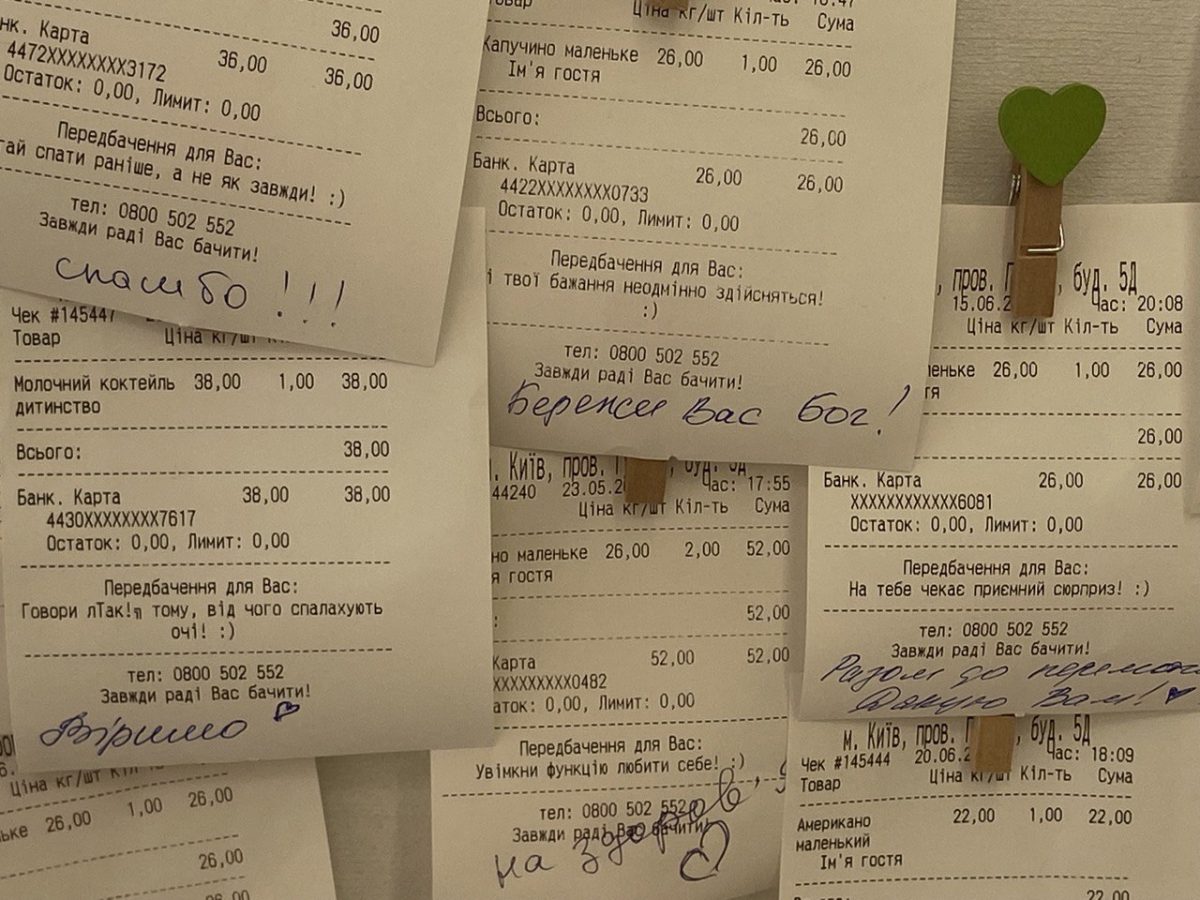 36,00
нк. Карта 36,00 36,00
4472XXXXXXXX3172
Остаток: 0,00, Лимит: 0,00
Передбачення для Вас:
гай спати раніше, а не як завжди! :)
тел: 0800 502 552
Завжди раді Вас бачити!
спасибо !!!
Ціна кг/шт Кіл-ть Сума
Капучино маленьке 26,00 1,00 26,00
Ім'я гостя
Всього: 26,00
Банк. Карта 26,00 26,00
4422XXXXXXXX0733
Остаток: 0,00, Лимит: 0,00
Передбачення для Вас:
і твої бажання неодмінно здійсняться!
:)
тел: 0800 502 552
Завжди раді Вас бачити!
Бережи Вас бог!
Чек #145447
Товар Ціна кг/шт
Молочний коктейль 38,00 1,00 38,00
дитинство
Всього: 38,00
Банк. Карта 38,00 38,00
4430XXXXXXXX7617
Остаток: 0,00, Лимит: 0,00
Передбачення для Вас:
Говори лТак!¶ тому, від чого спалахують
очі! :)
тел: 0800 502 552
Завжди раді Вас бачити!
Віримо
м. Київ, пров. буд. 5Д
44240 23.05.2 Час: 17:55
Ціна кг/шт Кіл-ть Сума
но маленьке 26,00 2,00 52,00
я гостя
: 52,00
Карта 52,00 52,00
XXXXXXXXX0482
аток: 0,00, Лимит: 0,00
Передбачення для Вас:
Увімкни функцію любити себе! :)
тел: 0800 502 552
Завжди раді Вас бачити!
на здоров'я
, пров. П буд. 5Д
15.06.2 Час: 20:08
Ціна кг/шт Кіл-ть Сума
еньке 26,00 1,00 26,00
тя
26,00
Банк. Карта 26,00 26,00
XXXXXXXXXXXX6081
Остаток: 0,00, Лимит: 0,00
Передбачення для Вас:
На тебе чекає приємний сюрприз! :)
тел: 0800 502 552
Завжди раді Вас бачити!
Разом до перемоги
Дякую Вам!
м. Київ, пров. П буд. 5Д
Чек #145444 20.06.2 Час: 18:09
Товар Ціна кг/шт Кіл-ть Сума
Американо 22,00 1,00 22,00
маленький
Ім'я гостя
22,00
Ціна кг/шт Кіл-ть Сума
ьке 26,00 1,00 26,00
26,00